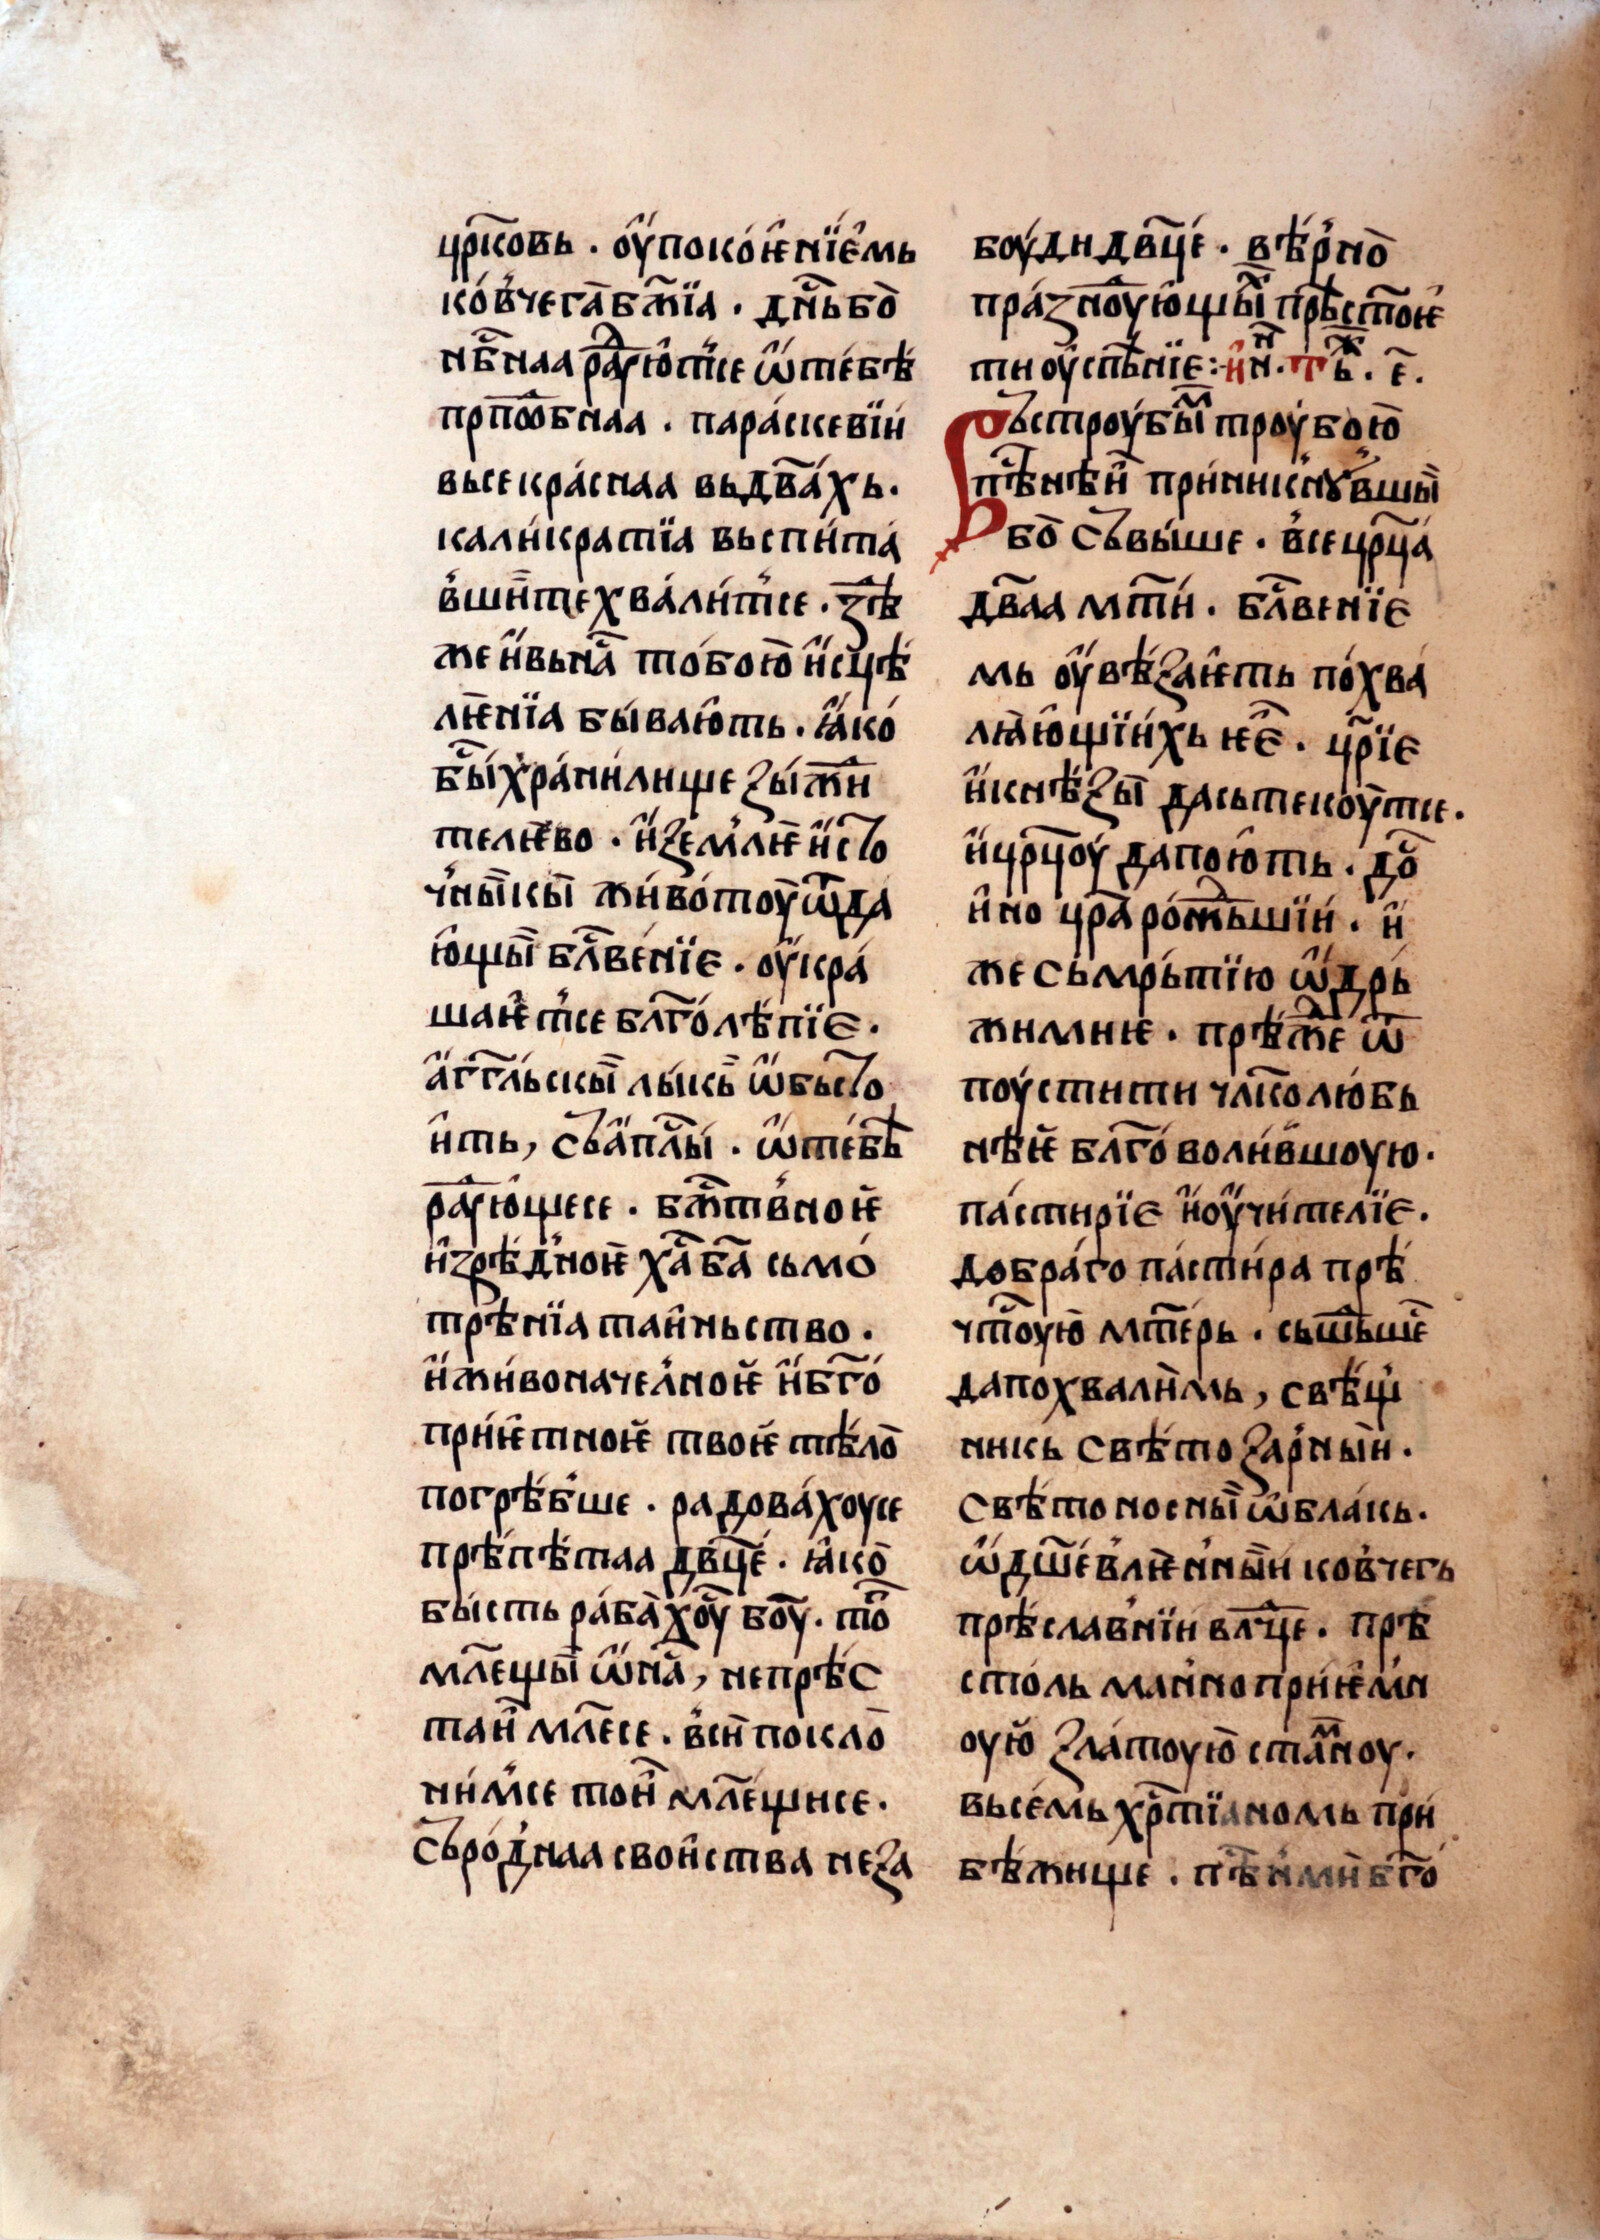 цр҃ковь · ѹ҆покое҆нїе҆мь
ко́вчега̀ бж҃їа · дн҃ь бо̀
нб҃наа ра́ꙋю҆тсе ѡ҆ тебѣ
прпⷣобнаа · параскевїи
вьсекраснаа вь дв҃ахь ·
каликратїа вьспита
в҆шїите хвалит҆се · зѣ
же и҆ вь на́ тобою̀ и҆сцѣ
лѥнїа бываю҆ть · ꙗ҆ко
бы́ хранилище зыжи
телѥво · и҆ земⷧлѥ и҆сто
ч҆ныкы животоу ѿда
ю҆щы бл҃венїе · ѹ҆кра
шаѥ҆т҆се бл҃голѣпїе ·
а҆гг҃льскы лыкь ѡ҆бьсто
и҆ть, сь а҆пⷭ҇лы · ѡ҆ тебѣ
раꙋю҆щесе · бж҃ств҆ноѥ
и҆зрѣд҆ноѥ ха̀ ба̀ сьмо
трѣнїа таи҆ньство ·
и҆ живоначел҆ноѥ и҆ бг҃о
приѥ҆тноѥ твоѥ тѣло̀
погрѣб҆ше · радовахоусе
прѣпѣтаа дв҃це · ꙗ҆ко̀
бысть раба̀ хоу̀ боу · то҆
мл҃ещы ѡ҆ на́, непрѣс
таи҆ мл҃есе · в҆си покло̀
ним҆се тои҆ мл҃ещисе ·
сьрод҆наа свои҆ства неза
боуди дв҃це · вѣр҆но̀
празноующы́ прѣстоѥ
ти ѹ҆спѣнїе :· и҆н · тѣⷤ · е҃ ·
Сь строубы́ троубою̀
пⷭ҇ѣнѣи҆ приникноув҆шы
бо̀ сьвыше · в҆се цр҃ца
дв҃аа мт҃и · бл҃венїе
мь ѹ҆вѣзаѥ҆ть похва
лꙗю҆щїихь ѥ҆е · цр҃їе
и҆ кнѣзы дасьтекоут҆се ·
и҆ цр҃цоу да пою҆ть · до
и҆но цр҃а рожⷣьшїи · и҆
же сьмрьтїю ѡ҆дрь
жимиѥ · прѣжⷣе ѿ
поустити чл҃колюбь
нѣѥ бл҃говолив҆шоую ·
пастирїе и҆ ѹ҆чителїе ·
добраго пастира прѣ
чтⷭ҇оую̀ мт҃ерь · сьшьше
да похвалимь, свѣщ҆
никь свѣтозар҆ныи ·
свѣтоносны ѡ҆блакь ·
ѡ҆дш҃ев҆лѥн҆ныи ков҆чегь
прѣслав҆нїи вл҃чце · прѣ
столь ман҆ноприѥм҆н
оую̀ златоую̀ стам҆ноу ·
вьсемь хр҃тїаномь при
бѣжище · пⷭ҇ѣн҆ми бг҃о